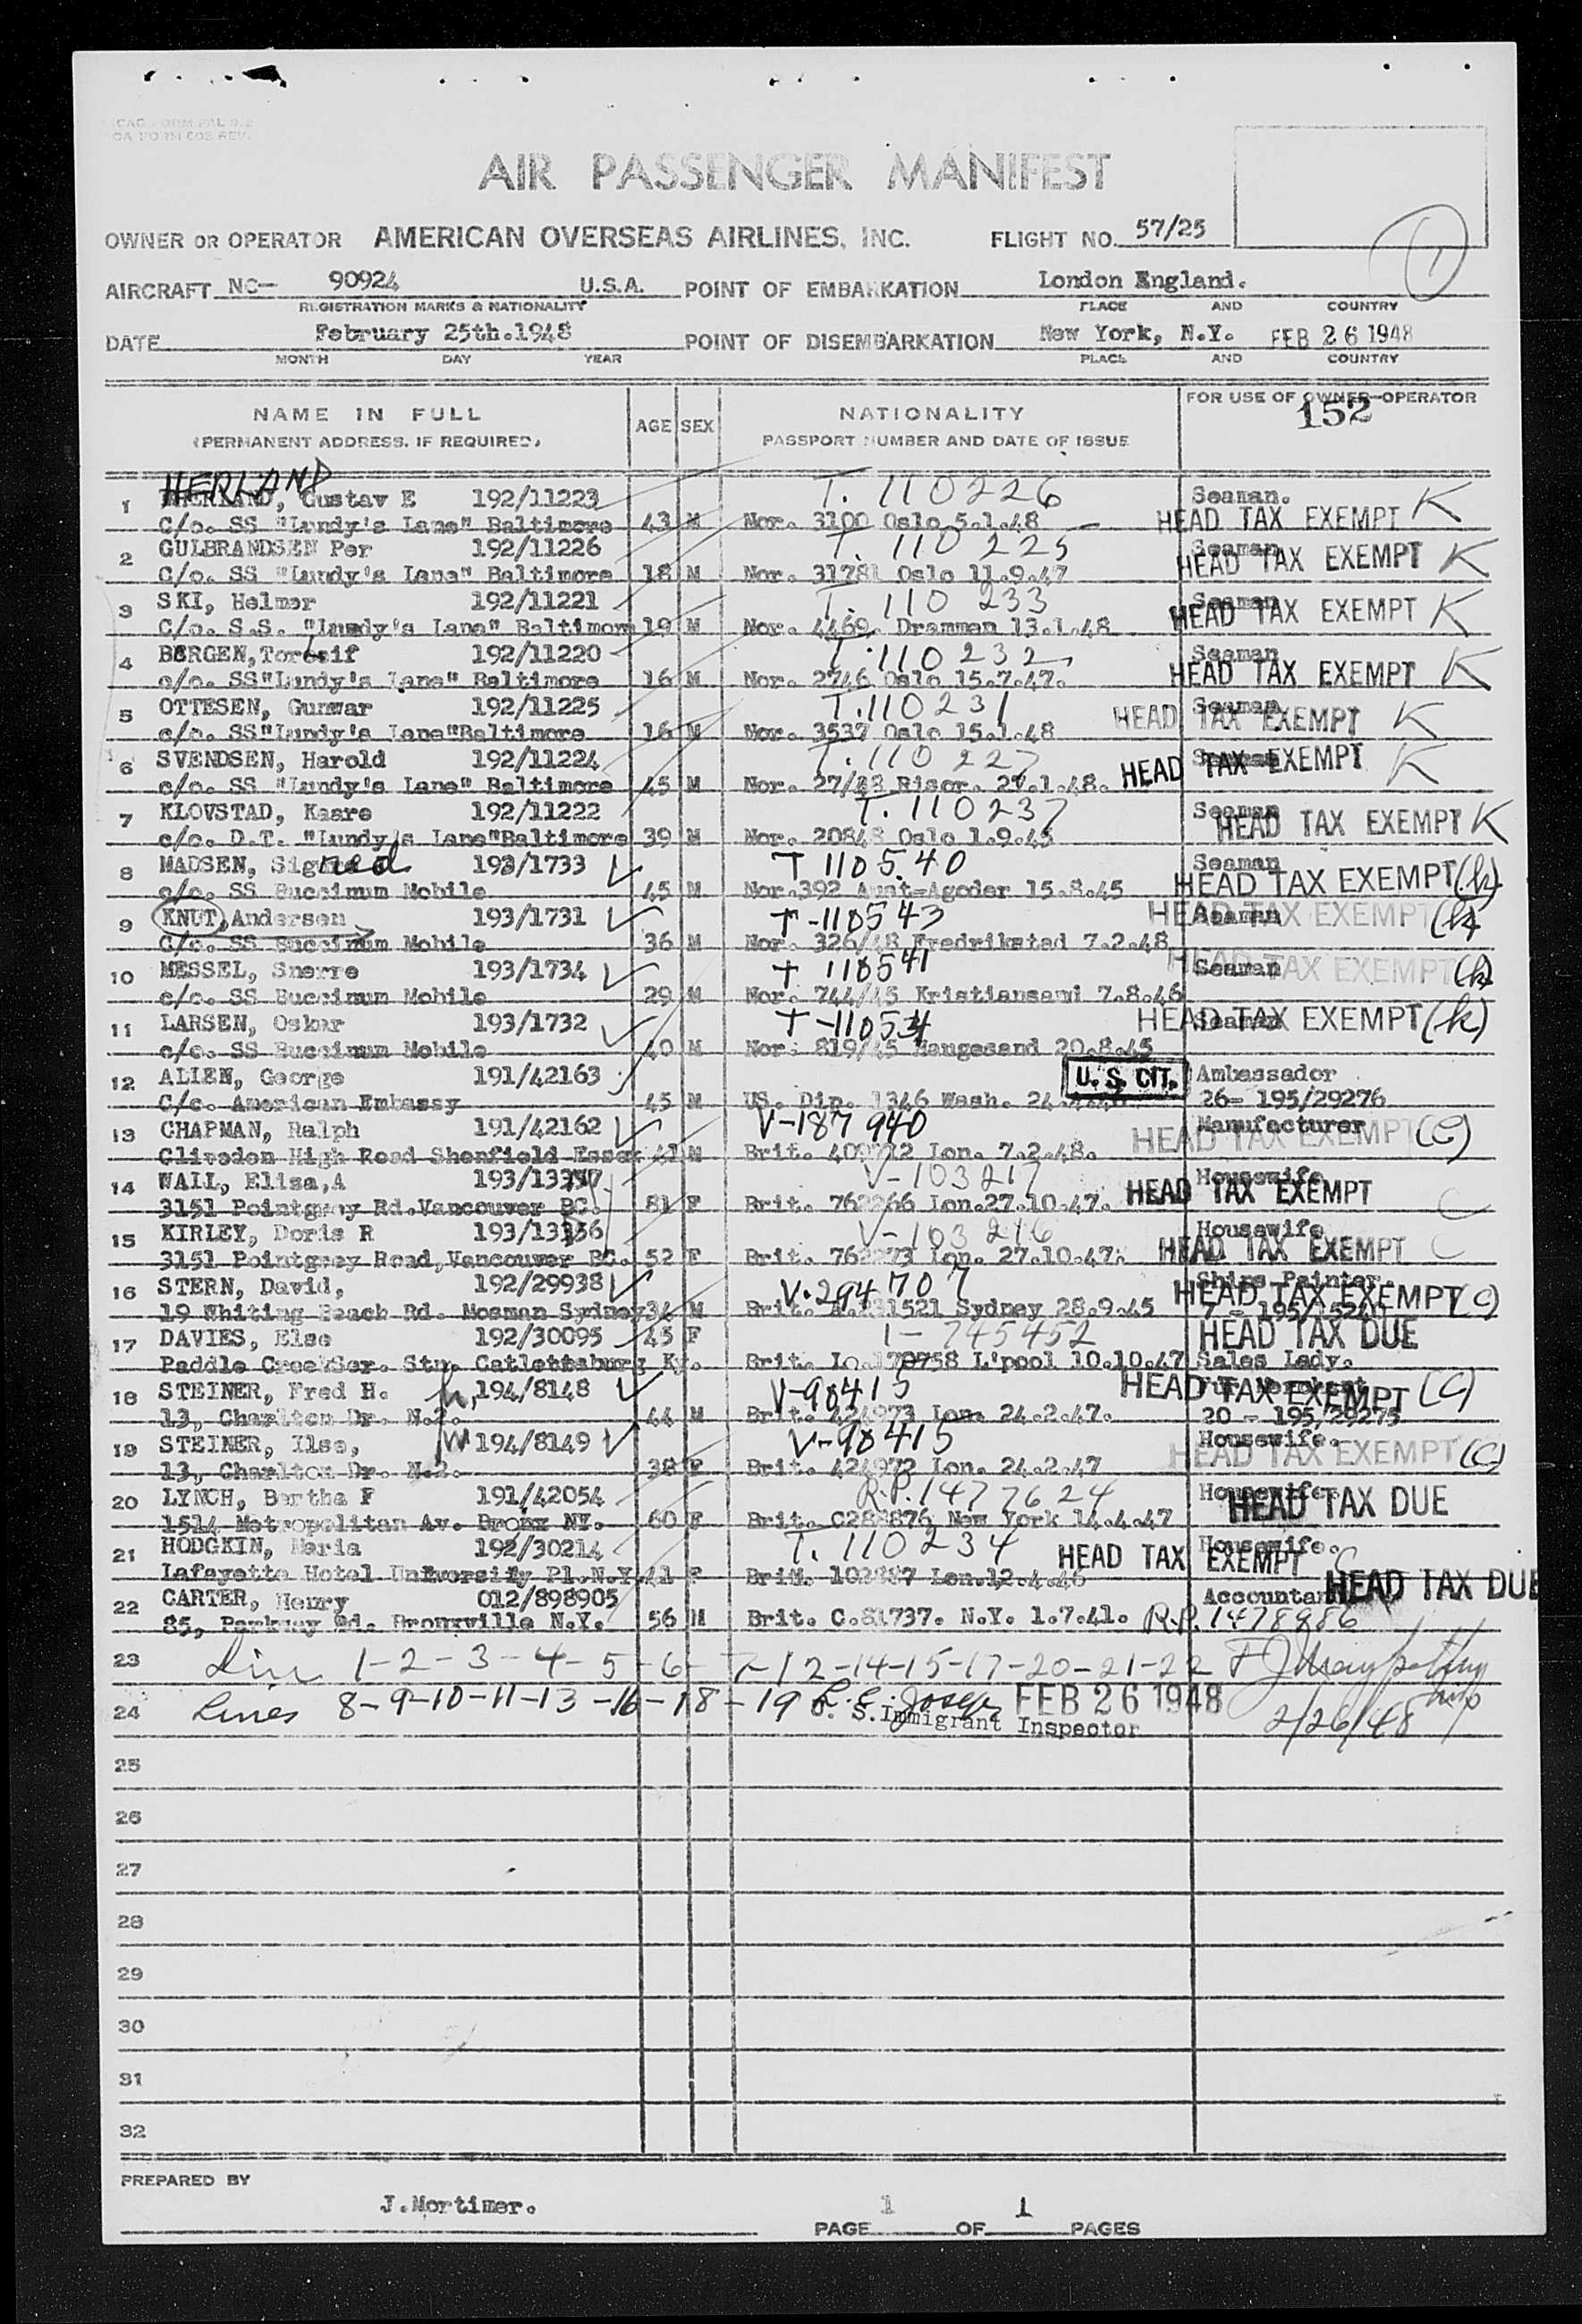 AIR PASSENGER MANIFEST
OWNER OR OPERATOR AMERICAN OVERSEAS AIRLINES, INC. FLIGHT NO. 57/25
1
AIRCRAFT NC— 90924 U.S.A. POINT OF EMBARKATION London England.
REGISTRATION MARKS & NATIONALITY PLACE AND COUNTRY
DATE February 25th.1948 POINT OF DISEMBARKATION New York, N.Y. FEB 26 1948
MONTH DAY YEAR PLACE AND COUNTRY
NAME IN FULL AGE SEX NATIONALITY FOR USE OF OWNER-OPERATOR
(PERMANENT ADDRESS, IF REQUIRED) PASSPORT NUMBER AND DATE OF ISSUE 152
HERLAND
1 Gustav E 192/11223 T. 110226 Seaman. K
C/o. SS "Lundy's Lane" Baltimore 43 M Nor. 3100 Oslo 5.1.48 HEAD TAX EXEMPT
2 GULBRANDSEN Per 192/11226 T. 110 225 Seaman K
C/o. SS "Lundy's Lane" Baltimore 18 M Nor. 31781 Oslo 11.9.47 HEAD TAX EXEMPT
3 SKI, Helmer 192/11221 T. 110 233 Seaman K
C/o. S.S. "Lundy's Lane" Baltimore 19 M Nor. 4469. Drammen 13.1.48 HEAD TAX EXEMPT
4 192/11220 T. 110232 Seaman K
c/o. SS"Lundy's Lane" Baltimore 16 M Nor. 2746 Oslo 15.7.47. HEAD TAX EXEMPT
5 OTTESEN, Gunwar 192/11225 T.110231 Seaman K
c/o. SS"Lundy's Lane"Baltimore 16 M Nor. 3537 Oslo 15.1.48 HEAD TAX EXEMPT
6 SVENDSEN, Harold 192/11224 T. 110 227 Seaman K
c/o. SS "Lundy's Lane" Baltimore 45 M Nor. 27/48 Risor. HEAD TAX EXEMPT
7 KLOVSTAD, Kaare 192/11222 T. 110237 Seaman
c/o. D.T. "Lundy's Lane"Baltimore 39 M Nor. 20848 Oslo 1.9.45 HEAD TAX EXEMPT K
8 MADSEN, Signed 193/1733 T 110540 Seaman
c/o. SS Buccinum Mobile 45 M Nor.392 Aust-Agoder 15.8.45 HEAD TAX EXEMPT (k)
9 KNUT, Andersen 193/1731 T-110543 Seaman HEAD TAX EXEMPT (k)
C/o. SS Buccinum Mobile 36 M Nor. 326/48 Fredrikstad 7.2.48
10 MESSEL, Snerre 193/1734 T 110541 Seaman HEAD TAX EXEMPT (k)
c/o. SS Buccinum Mobile 29 M Nor. 744/45 Kristiansand 7.8.46
11 LARSEN, Oskar 193/1732 T-110534 Seaman HEAD TAX EXEMPT (k)
c/o. SS Buccinum Mobile 40 M Nor. 819/45 Haugesand 20.8.45
12 ALIEN, George 191/42163 U.S. CIT. Ambassador
C/o. American Embassy 45 M US. Dip. 1346 Wash. 26- 195/29276
13 CHAPMAN, Ralph 191/42162 V-187940 Manufacturer
Clivedon High Road Shenfield Essex 41 M Brit. Lon. 7.2.48. HEAD TAX EXEMPT (C)
14 WALL, Elisa,A V-103217 Housewife
3151 Pointgrey Rd.Vancouver BC. 81 F Brit. 762266 Lon.27.10.47. HEAD TAX EXEMPT C
15 KIRLEY, Doris R V-103216 Housewife
3151 Pointgrey Road,Vancouver BC. 52 F Brit. 762273 Lon. 27.10.47. HEAD TAX EXEMPT C
16 STERN, David, 192/29938 V-294707 Ships Painter.
19 Whiting Beach Rd. Mosman Sydney 34 M Brit. Sydney 28.9.45 HEAD TAX EXEMPT (C)
17 DAVIES, Else 192/30095 45 F I-745452 HEAD TAX DUE
Paddle Creek Catlettsburg Ky. Brit. L'pool 10.10.47 Sales Lady.
18 STEINER, Fred H. h, 194/8148 V-90415 Fur Merchant HEAD TAX EXEMPT (C)
13, Charlton Dr. N.2. 44 M Brit. 424973 Lon. 24.2.47. 20 - 195/29275
19 STEINER, Ilse, W 194/8149 V-90415 Housewife.
13, Charlton Dr. N.2. 38 F Brit. 424972 Lon. 24.2.47 HEAD TAX EXEMPT (C)
20 LYNCH, Bertha F 191/42054 R.P. 1477624 Housewife.
1514 Metropolitan Av. Bronx NY. 60 F Brit. C288876 New York 14.4.47 HEAD TAX DUE
21 HODGKIN, Maria 192/30214 T. 110234 Housewife. C
Lafayette Hotel University Pl.N.Y. 41 F Brit. Lon.12.4.46 HEAD TAX EXEMPT
22 CARTER, Henry 012/898905 Accountant HEAD TAX DUE
85, Parkway Rd. Bronxville N.Y. 56 M Brit. C.81737. N.Y. 1.7.41. R.P. 1478986
23 Line 1-2-3-4-5-6-7-12-14-15-17-20-21-22
24 Lines 8-9-10-11-13-16-18-19 FEB 26 1948
U. S. Immigrant Inspector 2/26/48
25
26
27
28
29
30
31
32
PREPARED BY
J.Mortimer.
PAGE 1 OF 1 PAGES